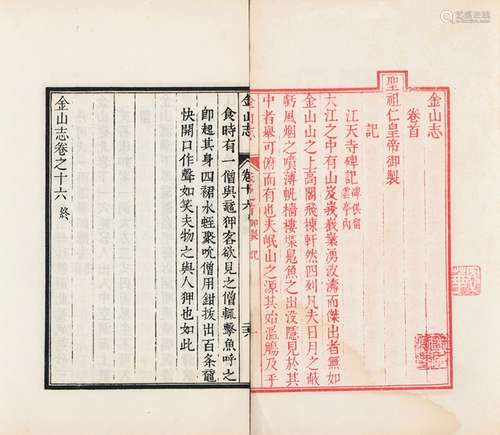 金山志
卷首
聖祖仁皇帝御製
記
江天寺碑記 碑俱留雲亭內
大江之中有山岌湧波濤而傑出者無如
金山山之上高閣飛揀軒然四列凡夫日月之蔽
虧風烟之噴薄帆檣樓堞魚鳥之出沒隱見於其
中者舉可俯而有也夫岷山之源其始濫觴及乎
金山志 卷首 御製 記
金山志 卷十六
食時有一僧與黿狎客欲見之僧輒擊魚呼之
卽起其身四裙水蛭聚吮僧用鉗拔出百条黿
快開口作聲如笑夫物之與人狎也如此
金山志卷之十六 終